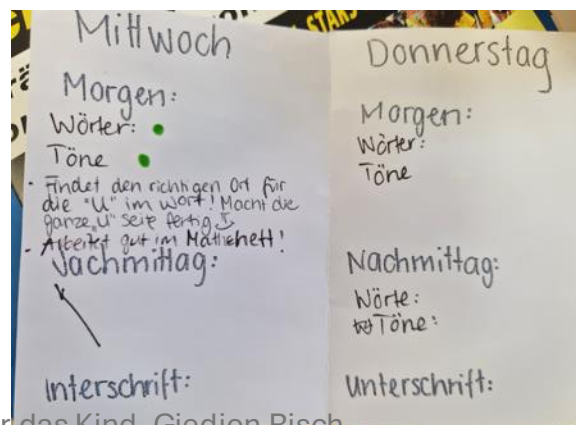 STARS
Mittwoch
Morgen:
Wörter:
Töne
- Findet den richtigen Ort für
die "U" im Wort! Macht die
ganze "U" seite fertig
- Arbeitet gut im Matheheft!
Nachmittag:
Unterschrift:
Donnerstag
Morgen:
Wörter:
Töne
Nachmittag:
Wörte:
Töne:
Unterschrift:
das Kind, Giedion Risch